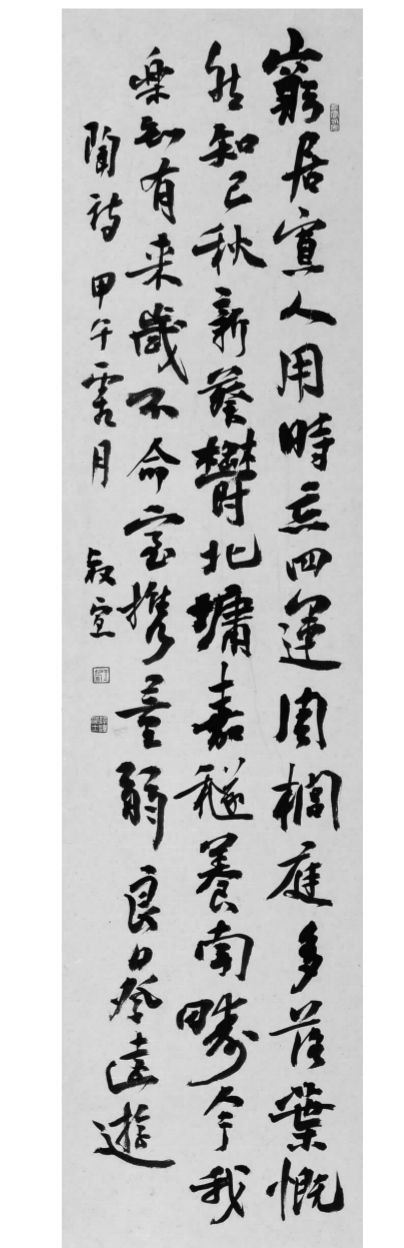 窮居寡人用時忘四運周櫚庭多落葉慨
然知已秋新葵鬱北墉嘉穟養南疇今我
楽知有来歲不命室携童弱良日登遠遊
陶詩 甲午露月 叔宣